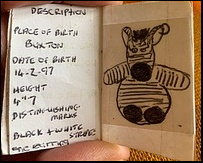 DESCRIPTION
PLACE OF BIRTH
BUXTON
DATE OF BIRTH
14-2-97
HEIGHT
4"7
DISTINGUISHING
MARKS
BLACK + WHITE
STRIPES